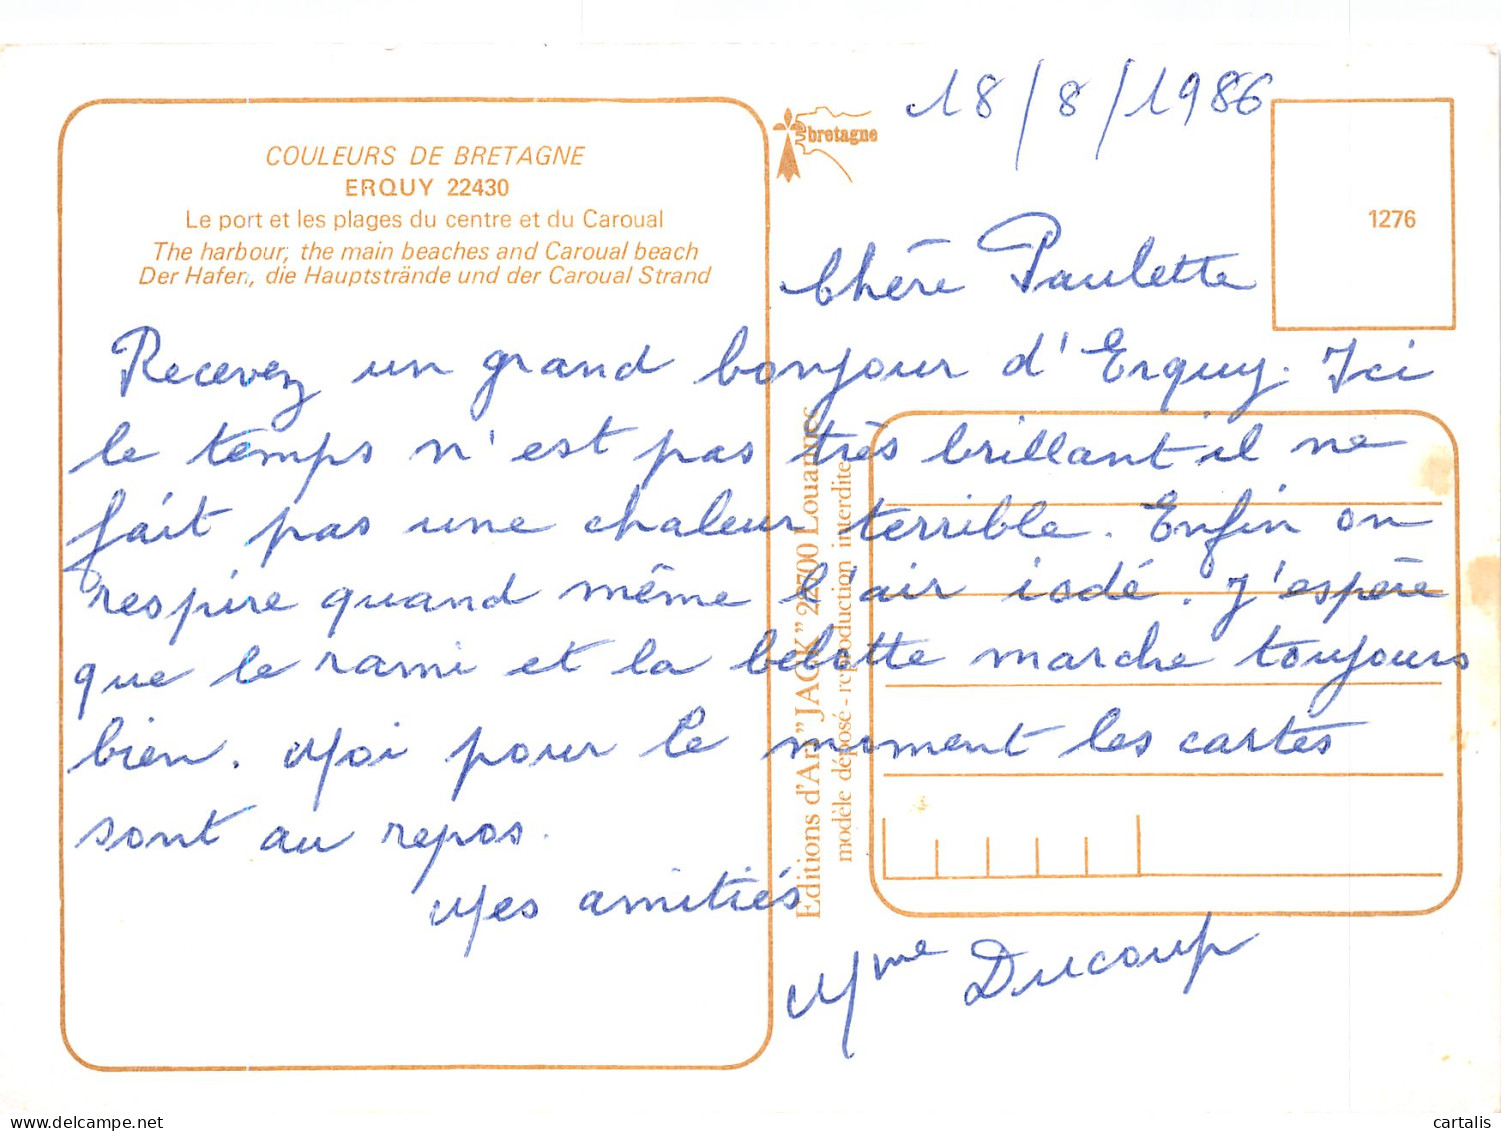 18/8/1986
COULEURS DE BRETAGNE
ERQUY 22430
Le port et les plages du centre et du Caroual
The harbour, the main beaches and Caroual beach
Der Hafen, die Hauptstrände und der Caroual Strand
bretagne
1276
Chère Paulette
Recevez un grand bonjour d'Erquy. Ici
le temps n'est pas très brillant il ne
fait pas une chaleur terrible. Enfin on
respire quand même l'air iodé. J'espère
que le rami et la belotte marche toujours
bien. Moi pour le moment les cartes
sont au repos.
Mes amitiés
Mme Ducoup
Editions d'Art "JACK" 22700 Louannec
modèle déposé - reproduction interdite
delcampe.net
cartalis